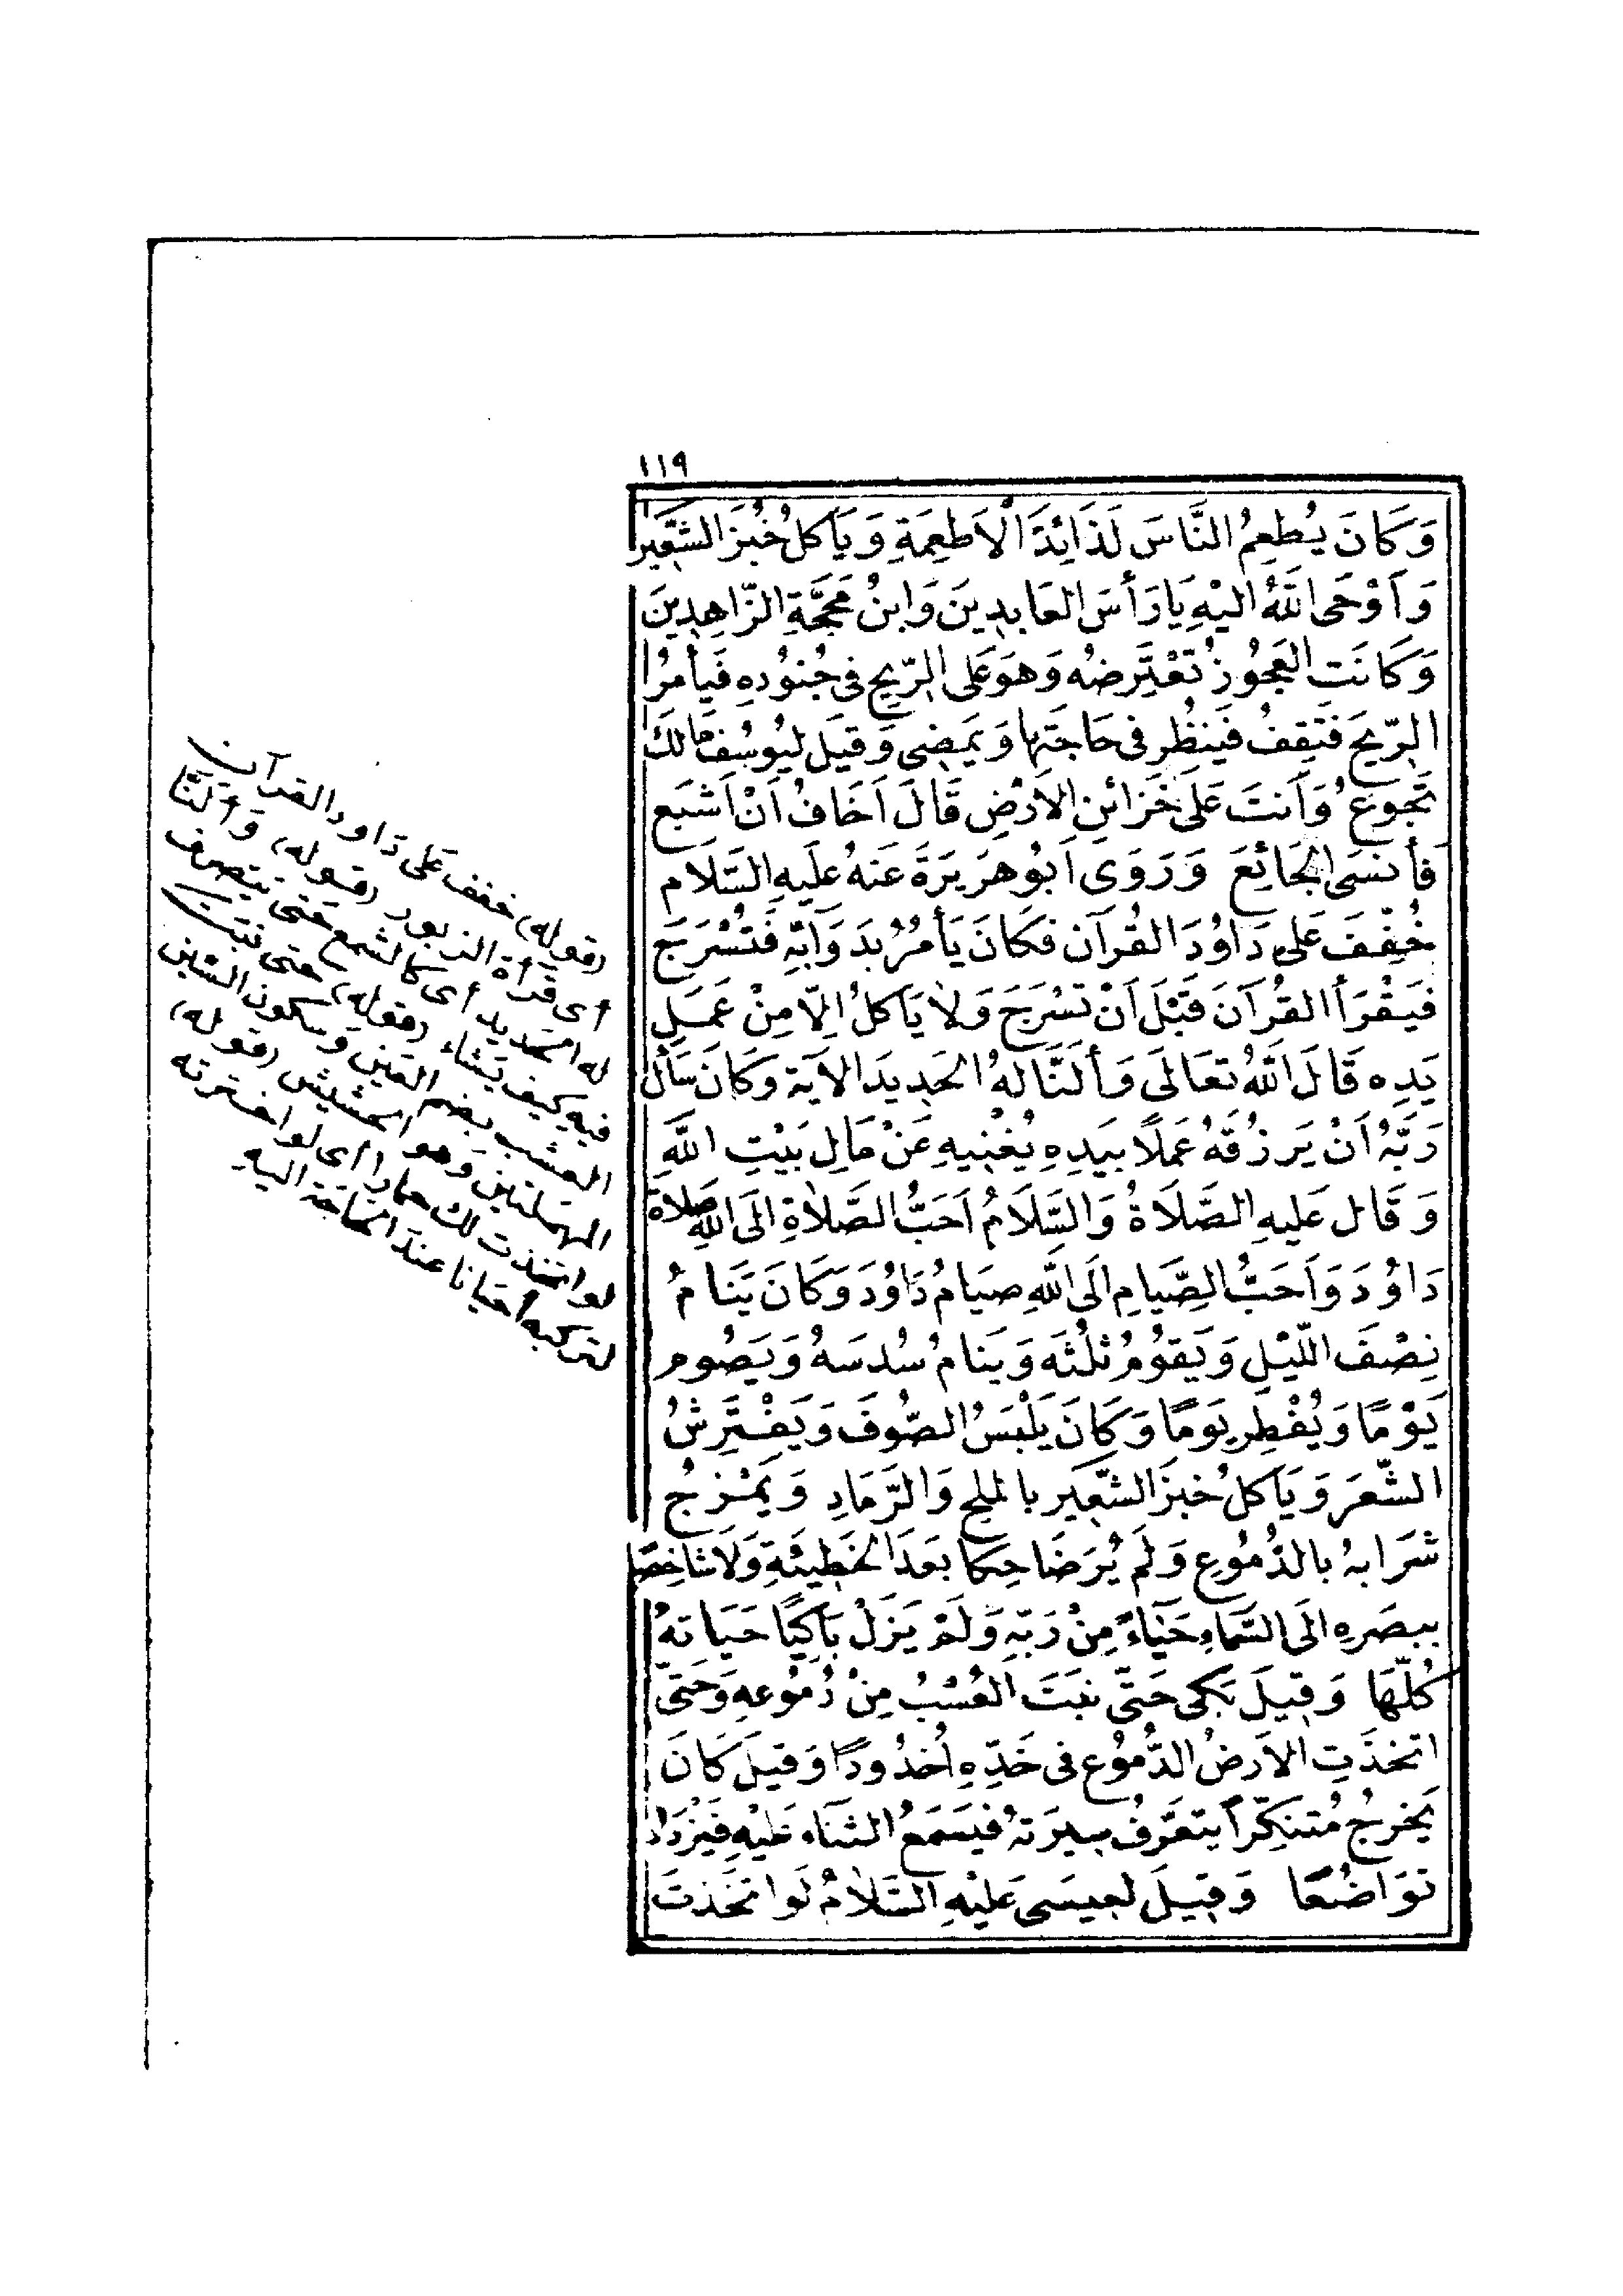 ١١٩
وَكَانَ يُطعِمُ النَّاسَ لَذَائِذَ الْاَطعِمَةِ وَيَأكلُ خُبْزَ الشَّعِير
وَاَوْحَى اللّٰهُ اليْهِ يَا رَأسَ العَابدِينَ وَابنُ مَحَجَّةِ الزّاهِدِينَ
وَكَانَت العَجُوزُ تَعْتَرِضُه وَهوَ عَلى الرّيحِ فى جُنُودِهِ فَيَأمُرُ
الرّيحَ فَتَقِفُ فَيَنظُر فى حَاجَتِهَا وَيَمضِى وَقيل ليُوسُف مَالَكَ
تَجُوعُ وَاَنتَ عَلى خَزَائنِ الاَرْضِ قَالَ اَخَافُ اَنْ اَشبَع
فَأنسَى الجَائِعَ وَرَوَى اَبُو هرَيرَةَ عَنهُ عَلَيهِ السَّلام
خُفّفَ عَلى دَاوُدَ القُرآن فكَانَ يَأمُرُ بدَوَابّهِ فَتُسْرَجَ
فيَقْرَأُ القُرآنَ قَبْلَ اَنْ تسْرَجَ وَلاَ يَأكلُ الِاّ مِنْ عَمَلِ
يَدِه قَالَ اللّٰهُ تعَالَى وَألَنَّا لهُ الحَدِيدَ الاَية وَكَانَ سَأل
رَبَّهُ اَنْ يَرزُقهُ عَمَلًا بيَدِهِ يُغنِيهِ عَنْ مَالِ بَيْتِ اللّٰهِ
وَقَال عَليهِ الصَّلَاةُ وَالسَّلَامُ اَحَبُّ الصَّلاةِ الَى اللّٰهِ صَلاة
دَاوُدَ وَاَحَبُّ الصِّيَامِ الَى اللّٰهِ صيَامُ دَاوُدَ وَكَانَ يَنامُ
نِصْفَ اللّيْلِ وَيَقوُمُ ثلُثَه وَيَنامُ سُدسَهُ وَيَصُوم
يَوْمًا وَيُفْطِر يَومًا وَكَانَ يَلْبَسُ الصُّوفَ وَيَفْتَرِشُ
الشّعَرَ وَيَأكلُ خبزَ الشّعِير بالملحِ وَالرّمَادِ وَيَمْزجُ
شَرَابهُ بالدُّمُوعِ وَلَم يُرَ ضَاحِكا بعَدَ الخَطِيئةِ وَلاَ شاخِصًا
ببصَرِهِ الَى السَّمَاءِ حَيَاءً مِنْ رَبّهِ وَلَمْ يَزَلْ بَاكيًا حَيَاتهُ
كُلّهَا وَقيلَ بَكَى حَتّى نبَتَ العُشْبُ مِنْ دُمُوعِهِ وَحَتىّ
اتخذَتِ الاَرضُ الدُّمُوع فى خَدّهِ اُخدُودًا وَقيلَ كَانَ
يَخرجُ مُتنكِّرًا يتعَرَّفُ سِيرَتهُ فيَسمَعُ الثنَاء عَليْهِ فيَزدَاد
توَاضُعًا وَقيلَ لعِيسَى عَليْهِ السّلامُ لَو اتخَذتَ
(قوله) خفف عَلى دَاود القرآن
أى قرأة الزبور (قوله) وَألَنَّا
له الحَديد أى كالشمع حتى يتصرف
فيه كيف يَشاء (قوله) حتى نبت
العشب بضم العَين وَسكون الشين
المهملتين وَهو الحشيش (قوله)
لو اتخذت لك حمارا أى لو اخترته
لتركبه أحيانا عندَ الحَاجَة اليه